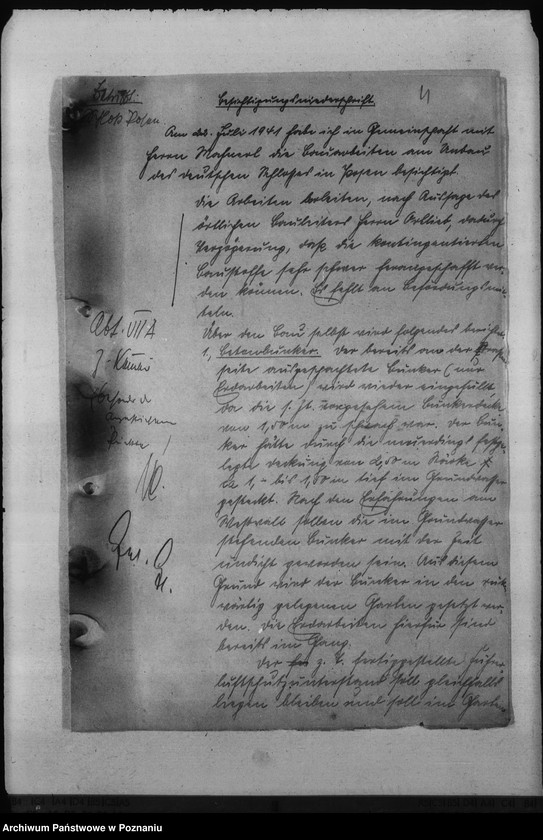 Betrifft:
Schloß Posen.
Besichtigungsniederschrift
4
Am 22. Juli 1941 habe ich in Gemeinschaft mit
Herrn die Bauarbeiten am Umbau
des deutschen Schlosses in Posen besichtigt.
Die Arbeiten leiden, nach Aussage des
örtlichen Bauleiters Herrn dadurch
Verzögerung, daß die kontingentierten
Baustoffe sehr schwer herangeschafft wer-
den können. Es fehlt an Beförderungsmit-
teln.
Über den Bau selbst wird folgendes berichtet
1, Betonbunker. Der bereits an der
seite ausgeschachtete Bunker (nur
Erdarbeiten) wird wieder eingefüllt
da die s. Zt. vorgesehene Bunkerdecke
von 1,50 m zu schwach war. Der Bun-
ker hätte durch die neuerdings festge-
legte Deckung von 2,50 m Stärke
ca 1,- bis 1,50 m tief im Grundwasser
gesteckt. Nach den Erfahrungen am
Westwall sollen die im Grundwasser
stehenden Bunker mit der Zeit
undicht geworden sein. Aus diesem
Grund wird der Bunker in den rück-
wärtig gelegenen Garten gesetzt wer-
den. Die Erdarbeiten hierfür sind
bereits im Gang.
Der z. T. fertiggestellte
luftschutzunterstand soll gleichfalls
liegen bleiben und soll im Garten
Abt. VII A
Archiwum Państwowe w Poznaniu